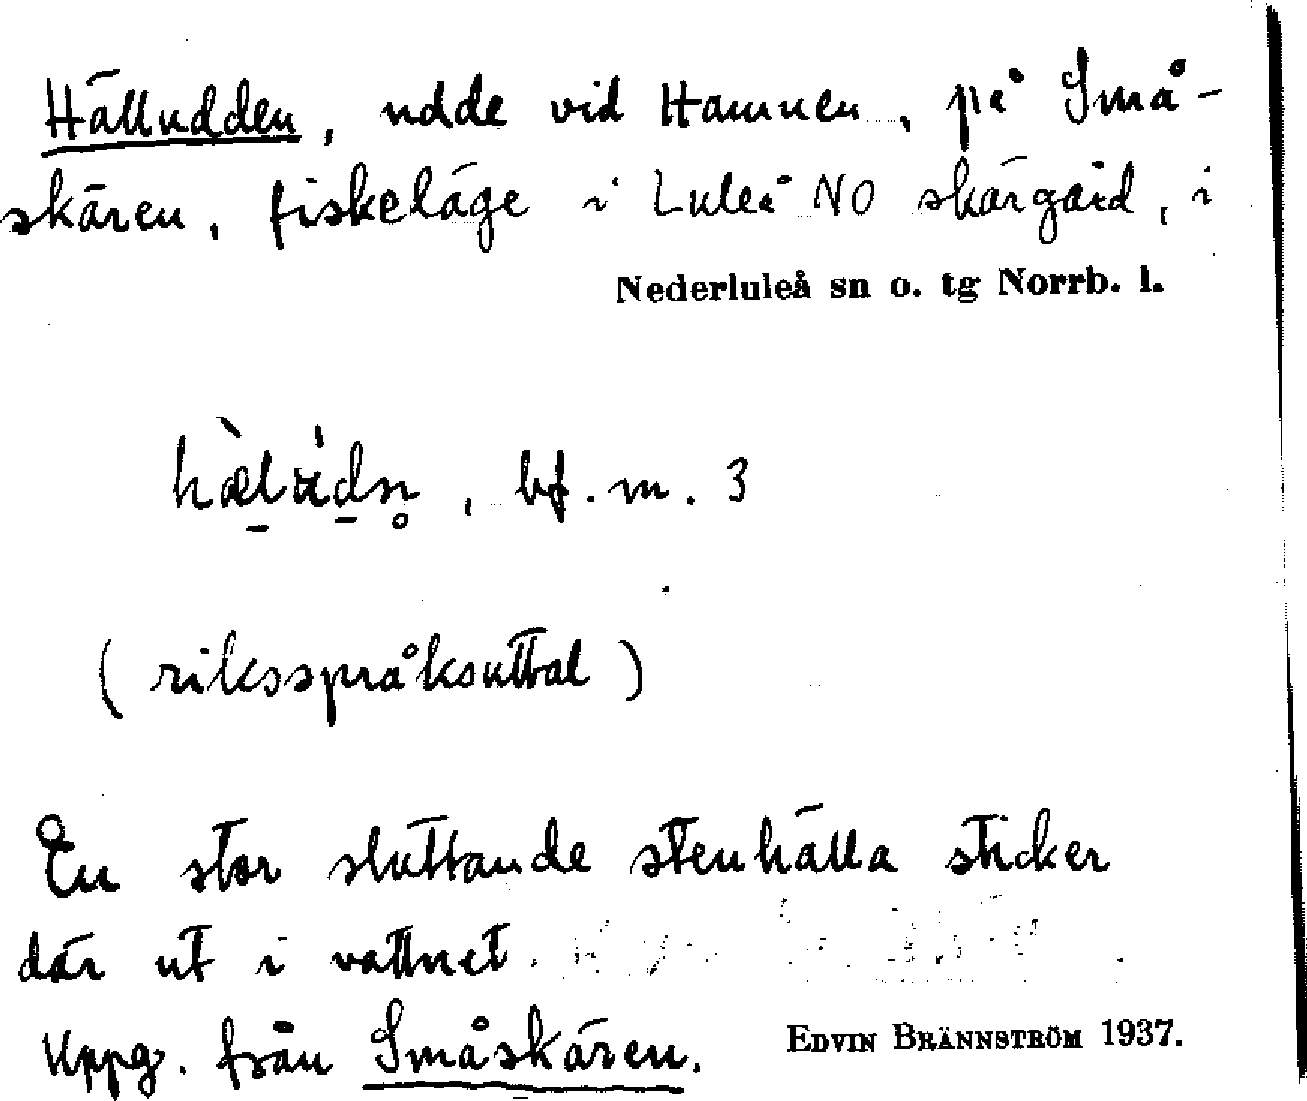 Hälludden, udde vid Hamnen, på Små-
skären, fiskeläge i Luleå NO skärgård, i
Nederluleå sn o. tg Norrb. l.
bf. m. 3
(riksspråksuttal)
En stor sluttande stenhälla sticker
där ut i vattnet.
Uppg. från Småskären. EDVIN BRÄNNSTRÖM 1937.